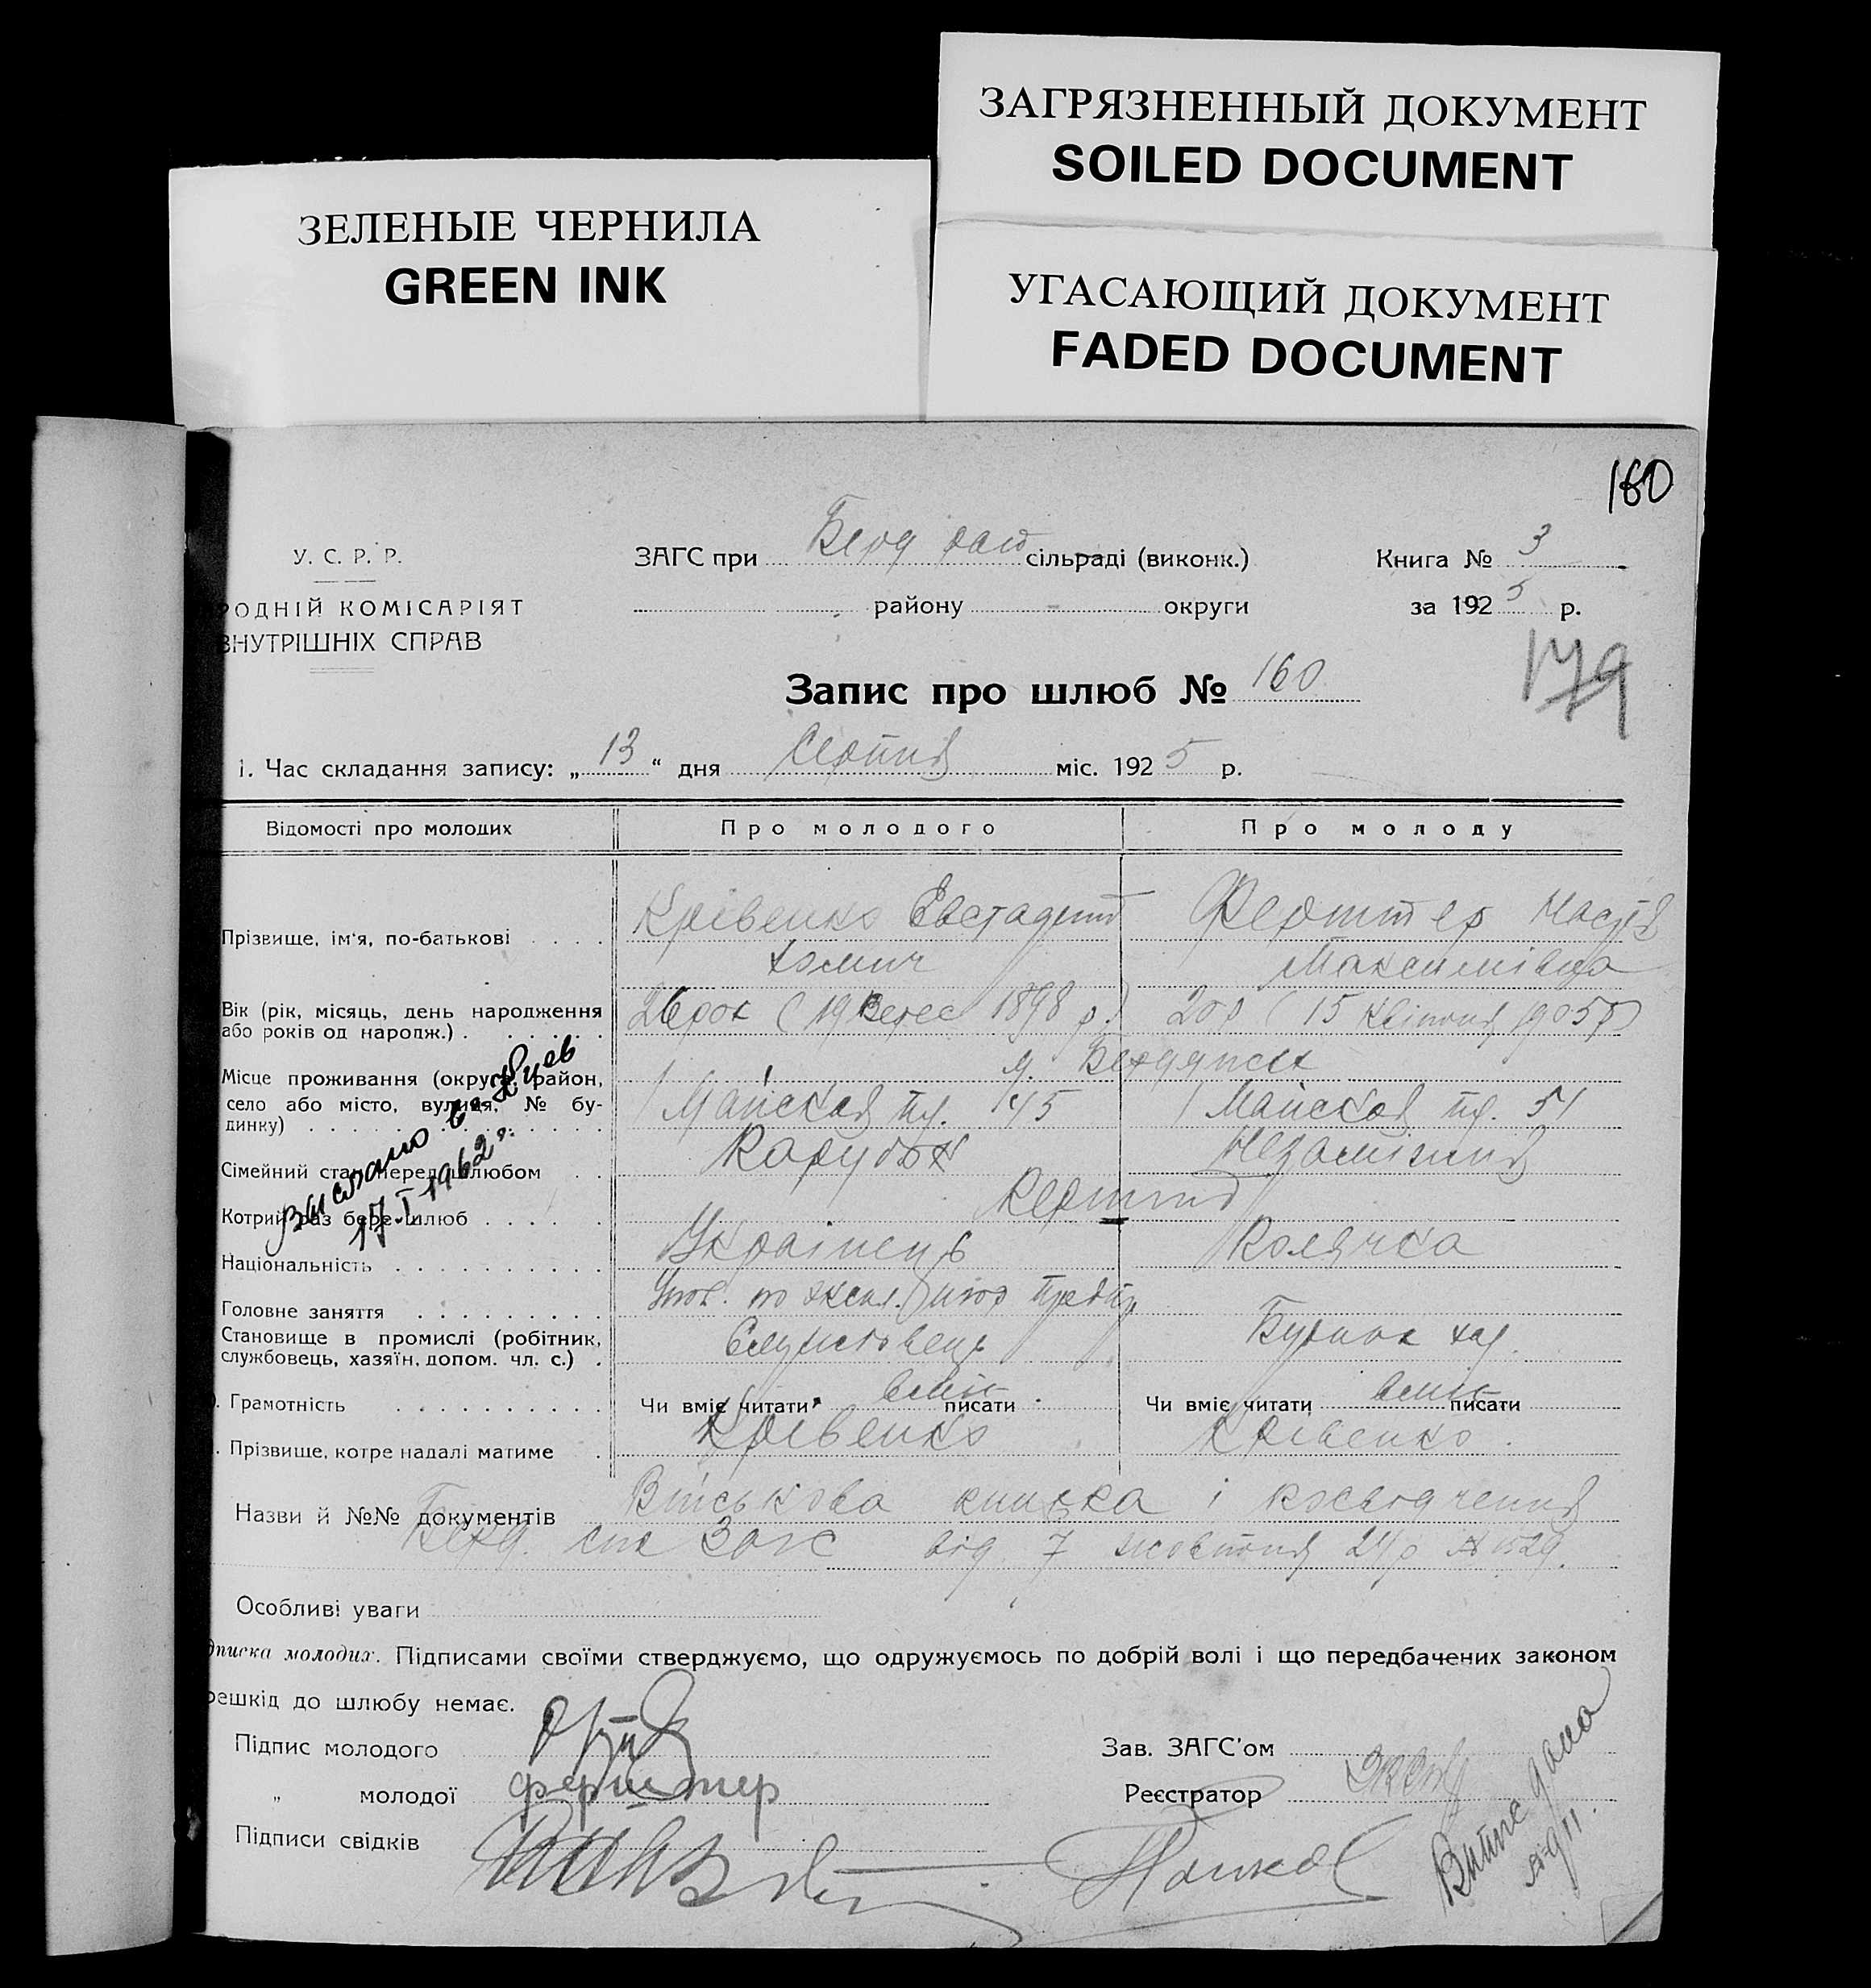 ЗАГРЯЗНЕННЫЙ ДОКУМЕНТ
SOILED DOCUMENT
ЗЕЛЕНЫЕ ЧЕРНИЛА
GREEN INK
УГАСАЮЩИЙ ДОКУМЕНТ
FADED DOCUMENT
160
У. С. Р. Р.
РОДНІЙ КОМІСАРІЯТ
ВНУТРІШНІХ СПРАВ
ЗАГС при Берд сільраді (виконк.)
району округи
Книга № 3
за 1925 р.
179
Запис про шлюб № 160
1. Час складання запису: „13“ дня Серпня міс. 1925 р.
Відомості про молодих Про молодого Про молоду
Прізвище, ім'я, по-батькові Крівенко Ферштер Настя
Хомич Максимівна
Вік (рік, місяць, день народження
або років од народж.) 26 рок (19 Верес 1898 р.) 20 р (15 Квітня 1905 р)
м. Бердянськ
Місце проживання (округа, район,
село або місто, вулиця, № бу-
динку) 1 Майская 145 1 Майская 51
Сімейний стан перед шлюбом Парубок Незаміжня
Котрий раз бере шлюб Перший
Національність Українець Полячка
Головне заняття
Становище в промислі (робітник,
службовець, хазяїн, допом. чл. с.) Службовець
Грамотність Чи вміє читати вміє писати Чи вміє читати вміє писати
Прізвище, котре надалі матиме Крівенко Крівенко
Назви й №№ документів Військова книжка і посвідчення
Берд. Загс від 7 жовтня 24 р
Особливі уваги
дписка молодих. Підписами своїми стверджуємо, що одружуємось по добрій волі і що передбачених законом
решкід до шлюбу немає.
Підпис молодого
„ молодої Ферштер
Підписи свідків
Зав. ЗАГС'ом
Реєстратор
Выслано в
17.I 1962 г.